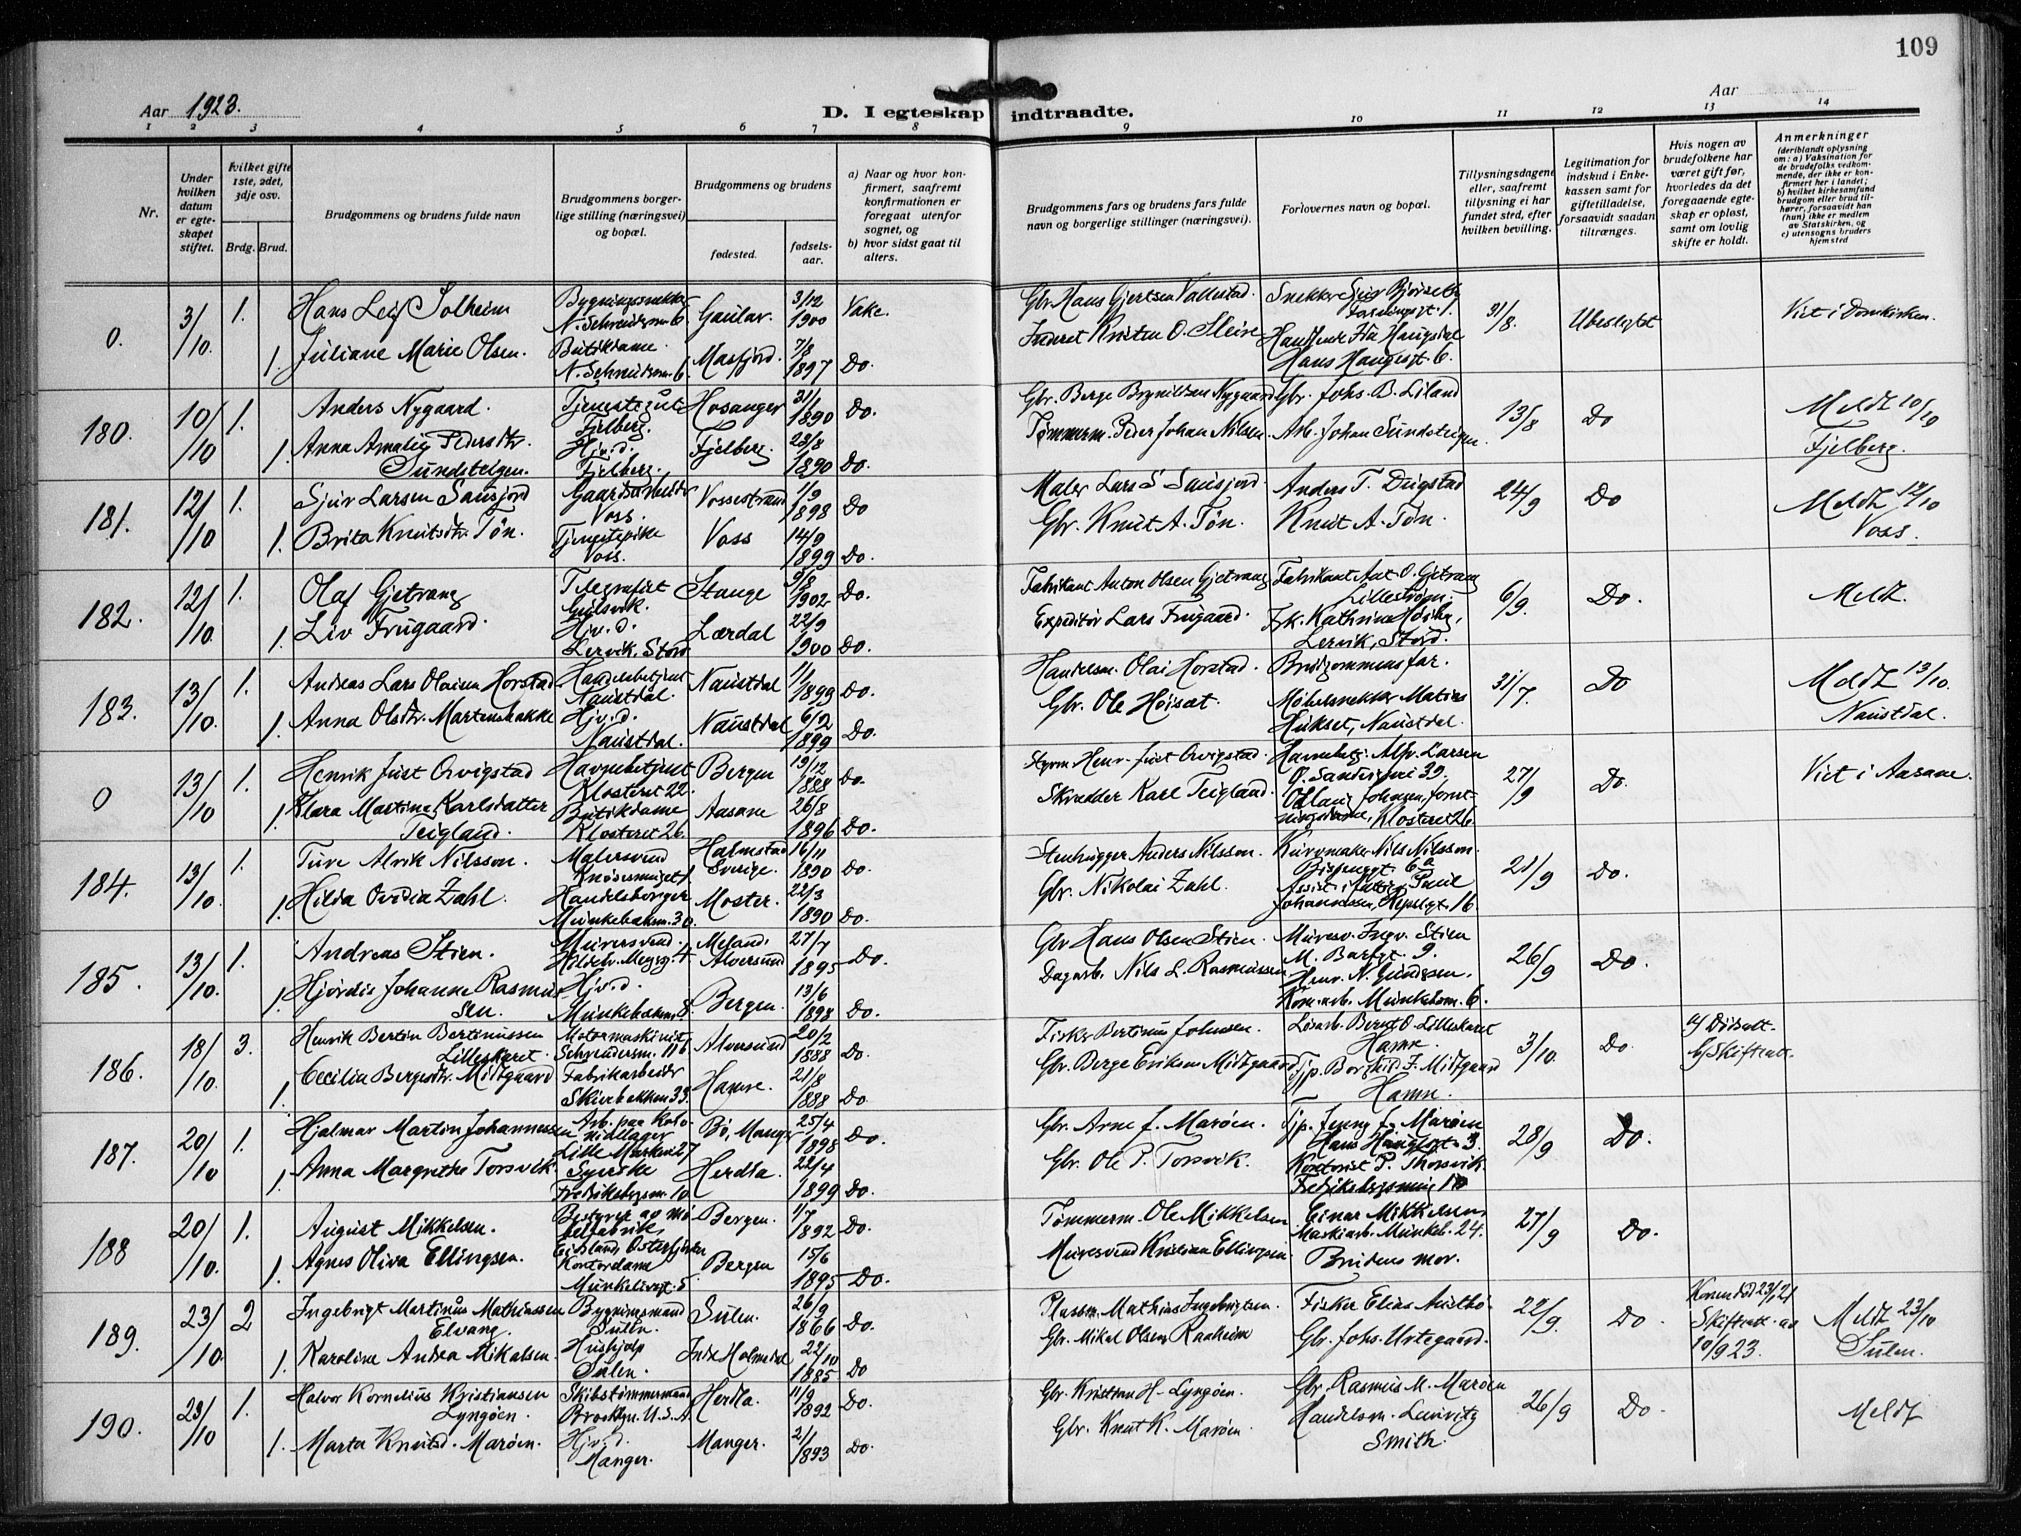 109
Aar 1923.
D. I egteskap indtraadte.
Aar
1 2 3 4 5 6 7 8 9 10 11 12 13 14
Nr.
Under hvilken datum er egteskapet stiftet.
Hvilket gifte 1ste, 2det, 3dje osv.
Brdg. Brud.
Brudgommens og brudens fulde navn
Brudgommens borgerlige stilling (næringsvei) og bopæl.
Brudgommens og brudens
fødested.
fødselsaar.
a) Naar og hvor konfirmert, saafremt konfirmationen er foregaat utenfor sognet, og
b) hvor sidst gaat til alters.
Brudgommens fars og brudens fars fulde navn og borgerlige stillinger (næringsvei).
Forlovernes navn og bopæl.
Tillysningsdagene eller, saafremt tillysning ei har fundet sted, efter hvilken bevilling.
Legitimation for indskud i Enkekassen samt for giftetilladelse, forsaavidt saadan tiltrænges.
Hvis nogen av brudefolkene har været gift før, hvorledes da det foregaaende egteskap er opløst, samt om lovlig skifte er holdt.
Anmerkninger (deriblandt oplysning om: a) Vaksination for de brudefolks vedkommende, der ikke er konfirmert her i landet; b) hvilket kirkesamfund brudgom eller brud tilhører, forsaavidt han (hun) ikke er medlem av Statskirken, og c) utensogns bruders hjemsted
0. 3/10. 1. Hans Leif Solheim N. Schreudersm. 6 Gaular. 3/12 1900 Vake. Gbr. Hans Gjertsen Vallestad. 31/8. Ubeslegtet Viet i Domkirken.
1. Juliane Marie Olsen. Butikdame N. Schreudersm. 6 Masfjord. 1897 Do. Hans Haugesgt. 6.
180. 10/10 1. Anders Nygaard. Fjelberg. Hosanger 31/1 1890 Do. Gbr. Berge Brynildsen Nygaard Gbr. Johs. B. Liland 13/8 Do Meldt 10/10 Fjelberg.
1. Anna Amalie Pedersdtr. Sundsteigen. Hj.v.d. Fjelberg. Fjelberg. 23/8 1890 Do. Tømmerm. Peder Johan Nilsen. Arb. Johan Sundsteigen.
181. 12/10 1. Sjur Larsen Sausjord Voss. Vossestrand 1898 Do Maler Lars S. Sausjord. Anders T. 24/9 Do Meldt 12/10 Voss.
1. Brita Knutsdtr. Tøn. Tjenestepike Voss. Voss 14/9 1899 Do. Gbr. Knut A. Tøn. Knut A. Tøn.
182. 12/10. 1. Olaf Gjetrang Telegrafist Gulsvik. Stange 9/8 1902 Do. Fabrikant Anton Olsen Gjetrang Fabrikant Ant. O. Gjetrang Lillestrøm. 6/9. Do. Meldt.
1. Liv Frugaard. Hj.v.d. Lervik. Stord Lærdal 22/9 1900 Do. Expeditør Lars Frugaard. Lervik, Stord.
183. 13/10. 1. Andreas Lars Olaisen Horstad Handelsbetjent Naustdal. Naustdal 1/1 1899 Do. Handelsm. Olai Horstad. Brudgommens far. 31/7. Do Meldt 13/10. Naustdal.
1. Anna Olsdtr. Martensbakke Hj.v.d. Naustdal. Naustdal 6/2 1899 Do. Gbr. Ole Høisæt. Møbelsnekker Matias Hukset, Naustdal.
0 13/10 1. Henrik Just Orvigstad Havnebetjent Klosteret 22. Bergen 19/12 1888 Do. Styrm. Henr. Just Orvigstad. Havnebetj. Alfr. Larsen 27/9 Do. Viet i Aasane.
1. Klara Martine Karlsdatter Teigland. Butikdame Klosteret 26. Aasane 26/8 1896 Do. Skrædder Karl Teigland. Klosteret 26.
184. 13/10. 1. Ture Alrik Nilsson. Malersvend Halmstad Sverige. 16/11 1890 Do. Stenhugger Anders Nilsson. Kurvmaker Nils Nilsson. 21/9 Do.
1. Hilda Ovidia Zahl. Munkebakm. 30. Moster. 22/3 1890 Do. Gbr. Nikolai Zahl. Paul Johannessen,
185. 13/10. 1. Andreas Stien. Murersvend. Meland. Alversund 27/7 1895 Do. Gbr Hans Olsen Stien. Muresv. Ingv. Stien 26/9 Do.
1. Hjørdis Johanne Rasmussen. Hj.v.d. Munkebakm. 8. Bergen. 13/6 1898 Do. Dagarb. Nils L. Rasmussen Henr. N. Gundersen.
186. 18/10. 3. Henrik Bertin Bertinussen Lilleskaret. Motormaskinist Alversund 20/2 1888 Do. Fisker Bertinus Johnsen. Bernt O. Lilleskaret Hamre. 3/10. Do a) Dødsatt. b) Skifteatt.
1. Cecilia Bergesdtr. Midtgaard Fabrikarbeider Skivebakken 33. Hamre. 21/8 1888 Do. Gbr. Berge Eriksen Midtgaard Tjp. Borghild J. Midtgaard Hamre.
187. 20/10 1. Hjalmar Martin Johannessen Arb. paa Kolonidlager Lille Marken 27 Bø, Manger 25/4 1898 Do. Gbr. Arne J. Marøen. Tjp. Jenny J. Marøen 28/9 Do.
1. Anna Margrethe Torsvik. Syerske Herdla 22/4 1899 Do. Gbr. Ole P. Torsvik. Kontorist P. Thorsvik.
188 20/10. 1. August Mikkelsen. Bestyrer av møbelfabrik Bergen. 1/7 1892 Do. Tømmerm. Ole Mikkelsen Einar Mikkelsen Munkeb. 24. 27/9 Do.
1. Agnes Oliva Ellingsen. Kontordame Bergen 15/6 1895 Do. Muresvend Kristian Ellingsen Brudens mor.
189. 23/10. 2 Ingebrigt Martinus Mathiassen Elvang. Bygningsmand Sulen. Sulen. 26/9 1866 Do. Plassm. Mathias Ingebrigtsen. Fisker Elias 22/9. Do. Konen død 23/2 21 Skifteatt. av 10/9 23. Meldt 23/10 Sulen.
1. Karoline Andrea Mikalsen. Hushjælp Sulen. Indre Holmedal 22/10 1885 Do Gbr. Mikal Olsen Raaheim Gbr. Johs. Urtegaard.
190. 23/10 1. Halvor Kornelius Kristiansen Lyngøen. Skibstømmermand Brooklyn. U.S.A. Herdla. 11/9 1892 Do. Gbr. Kristian H. Lyngøen. Gbr. Rasmus M. Marøen 26/9 Do. Meldt
1. Marta Knutsd. Marøen. Hj.v.d. Manger. Manger. 2/1 1893 Do. Gbr. Knut K. Marøen. Handelsm. Lauritz Smith.